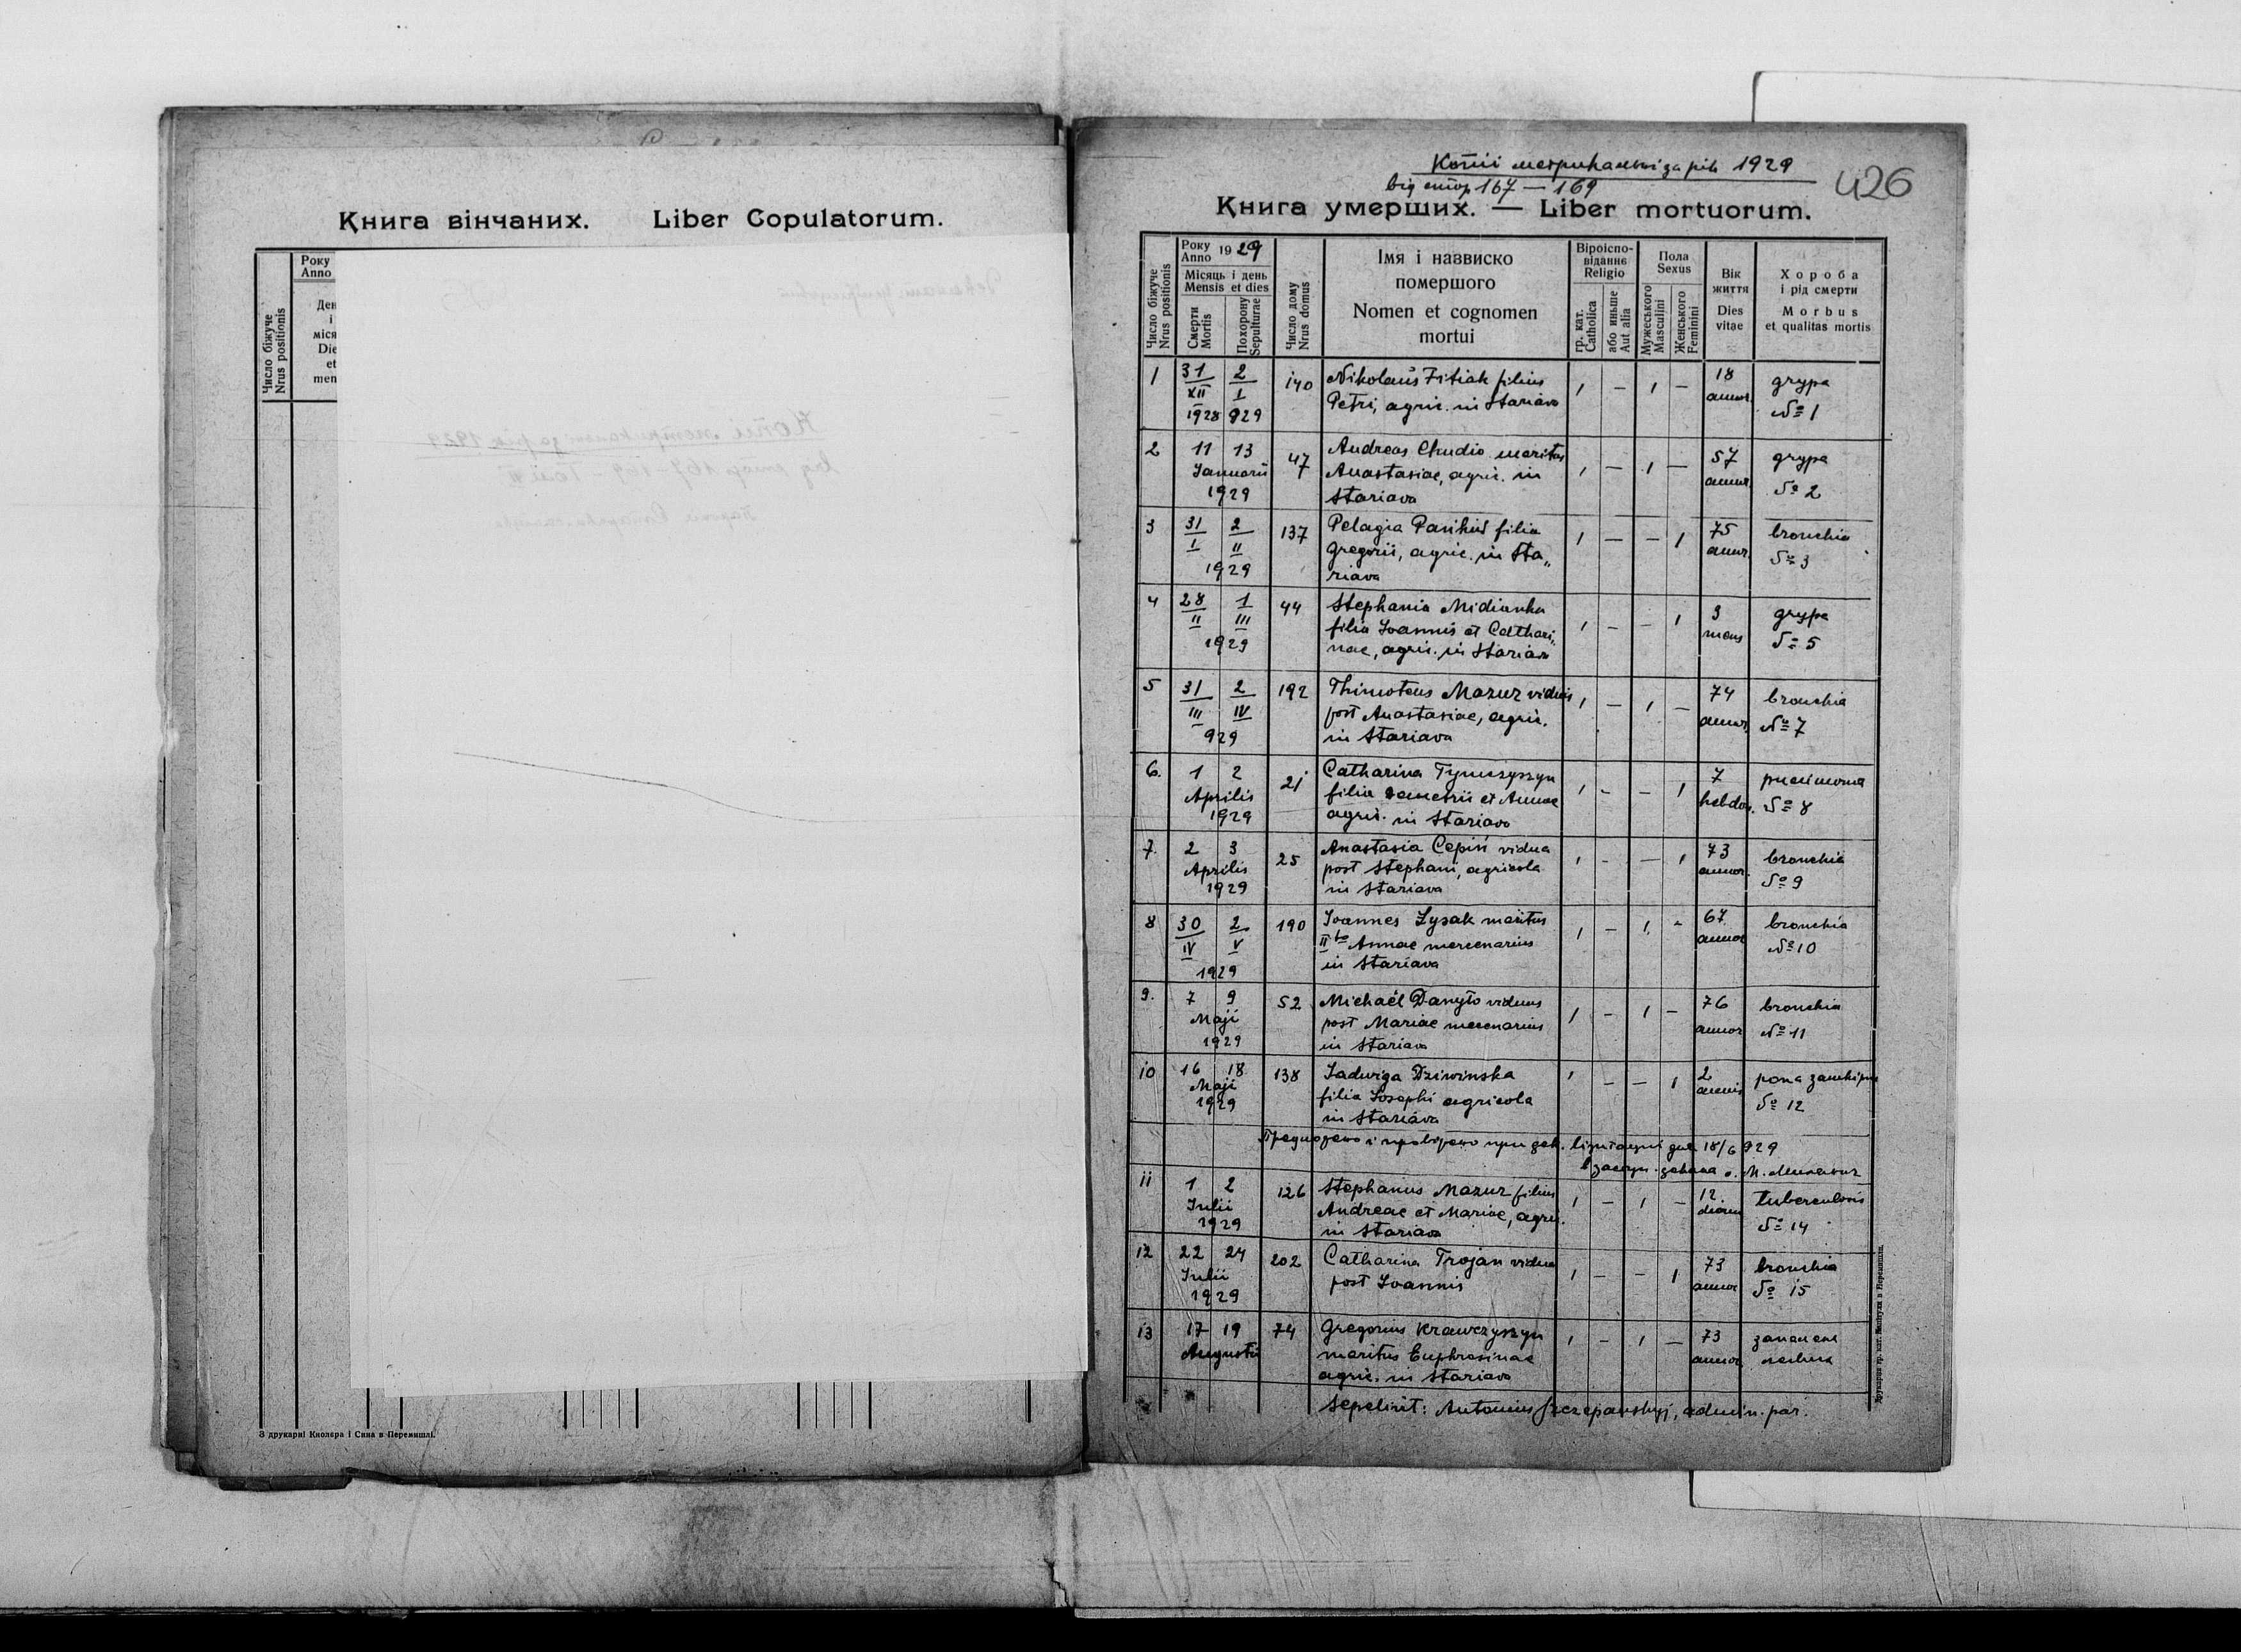 Книга вінчаних. Liber Copulatorum.
Число біжуче
Nrus positionis
Року
Anno
Ден
і
міся
Die
et
men
З друкарні Кнолєра і Сина в Перемишлі.
Копії метрикальні за рік 1929
від стор 167 — 169
426
Книга умерших. — Liber mortuorum.
Число біжуче
Nrus positionis
Року
Anno 1929
Місяць і день
Mensis et dies
Смерти
Mortis
Похорону
Sepulturae
Число дому
Nrus domus
Імя і назвиско
помершого
Nomen et cognomen
mortui
Віроіспо-
віданнє
Religio
гр. кат.
Catholica
або иньше
Aut alia
Пола
Sexus
Мужеського
Masculini
Женського
Feminini
Вік
життя
Dies
vitae
Хороба
і рід смерти
Morbus
et qualitas mortis
1 31 2 140 Nikolaus Fitiak filius 1 — 1 — 18 grypa
XII I Petri, agric. in Stariava annor. № 1
1928 929
2 11 13 47 Andreas Chudio maritus 1 — 1 — 57 grypa
Januarii Anastasiae, agric. in annor. № 2
1929 Stariava
3 31 2 137 Pelagia filia 1 — — 1 75 bronchia
I II Gregorii, agric. in Sta„ annor. № 3
1929 riava
4 28 1 44 Stephania Midianka 1 — — 1 3 grypa
II III filia Joannis et Cathari„ mens № 5
1929 nae, agric. in Stariava
5 31 2 192 Thimoteus Mazur viduus 1 — 1 — 74 bronchia
III IV post Anastasiae, agric. annor. № 7
929 in Stariava
6. 1 2 21 Catharina Tymczyszyn 1 - — 1 7 pneumonia
Aprilis filia Demetrii et Annae hebdom. № 8
1929 agric. in Stariava
7. 2 3 25 Anastasia Cepiń vidua 1 - — 1 73 bronchia
Aprilis post Stephani, agricola annor. № 9
1929 in Stariava
8 30 2 190 Joannes Łysak maritus 1 — 1 - 67 bronchia
IV V II to Annae mercenarius annor № 10
1929 in Stariava
9. 7 9 52 Michaël Danyło viduus 1 — 1 — 76 bronchia
Maji post Mariae mercenarius annor № 11
1929 in Stariava
10 16 18 138 Jadwiga Dziwinska 1 — — 1 2
Maji filia Josephi agricola annis № 12
1929 in Stariava
і провірено при дек. візитації дня 18/6 929
11 1 2 126 Stephanus Mazur filius 1 — 1 — 12. tuberculosis
Julii Andreae et Mariae, agric. dierum № 14
1929 in Stariava
12 22 24 202 Catharina Trojan vidua 1 — — 1 73 bronchia
Julii post Joannis annor № 15
1929
13 17 19 74 Gregorius Krawczyszyn 1 - 1 — 73 запалене
Augusti maritus Euphrosinae annor
agric. in Stariava
Sepelivit: Antonius Szczepanskyj, admin. par.